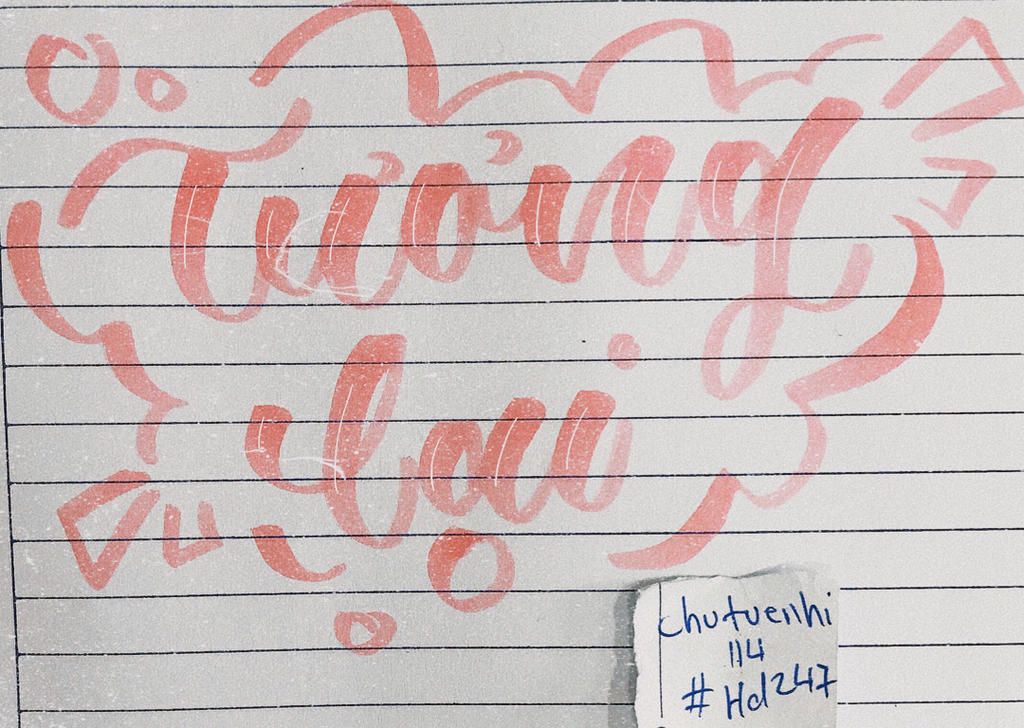 Tương
lai
chutuenhi
114
#Hd247